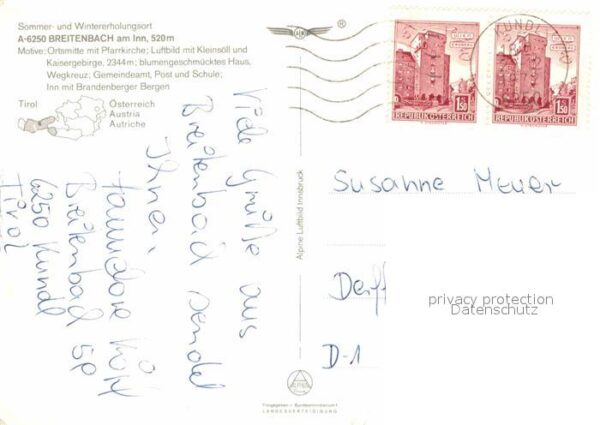 Sommer- und Wintererholungsort
A-6250 BREITENBACH am Inn, 520m
Motive: Ortsmitte mit Pfarrkirche; Luftbild mit Kleinsöll und
Kaisergebirge, 2344m; blumengeschmücktes Haus,
Wegkreuz; Gemeindeamt, Post und Schule;
Inn mit Brandenberger Bergen
Tirol
Österreich
Austria
Autriche
Viele Grüße aus
Breitenbach sendet
Ihnen
Hannelore
Breitenbach 59
6250 Kundl
Tirol
Alpine Luftbild Innsbruck
KUNDL
1.50
REPUBLIK ÖSTERREICH
1.50
REPUBLIK ÖSTERREICH
Susanne Meyer
D-1
privacy protection
Datenschutz
Freigegeben - Bundesministerium f.
LANDESVERTEIDIGUNG